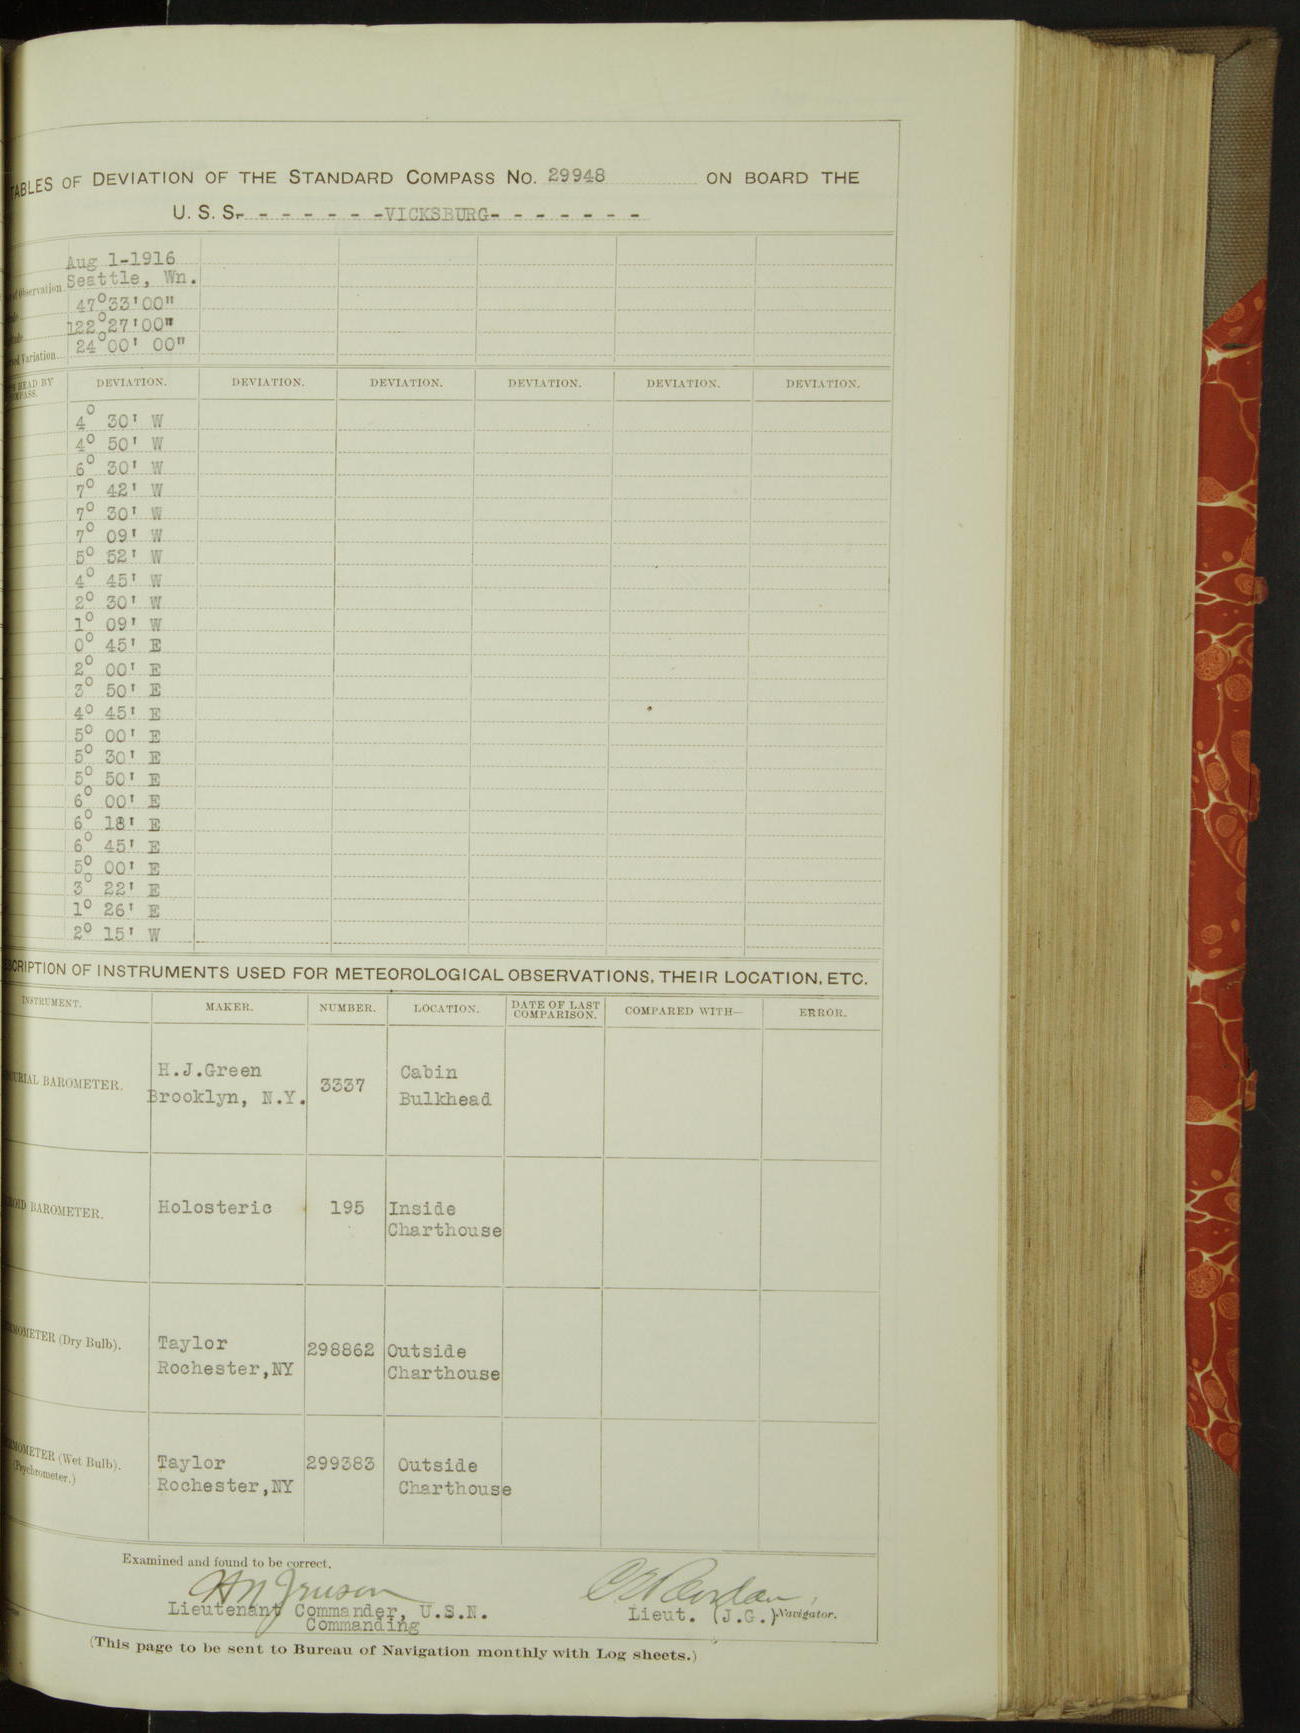 TABLES OF DEVIATION OF THE STANDARD COMPASS NO. 29948 ON BOARD THE
U. S. S. - - - - - - -VICKSBURG- - - - - - - -
Aug 1-1916
of Observation Seattle, Wn.
47°33'00"
122°27'00"
Variation 24°00' 00"
HEAD BY DEVIATION. DEVIATION. DEVIATION. DEVIATION. DEVIATION. DEVIATION.
4° 30' W
4° 50' W
6° 30' W
7° 42' W
7° 30' W
7° 09' W
5° 52' W
4° 45' W
2° 30' W
1° 09' W
0° 45' E
2° 00' E
3° 50' E
4° 45' E
5° 00' E
5° 30' E
5° 50' E
6° 00' E
6° 18' E
6° 45' E
5° 00' E
3° 22' E
1° 26' E
2° 15' W
SCRIPTION OF INSTRUMENTS USED FOR METEOROLOGICAL OBSERVATIONS, THEIR LOCATION, ETC.
INSTRUMENT. MAKER. NUMBER. LOCATION. DATE OF LAST COMPARISON. COMPARED WITH— ERROR.
BAROMETER. H.J.Green 3337 Cabin
Brooklyn, N.Y. Bulkhead
BAROMETER. Holosteric 195 Inside
Charthouse
MOMETER (Dry Bulb). Taylor 298862 Outside
Rochester,NY Charthouse
MOMETER (Wet Bulb). Taylor 299383 Outside
(Psychrometer.) Rochester,NY Charthouse
Examined and found to be correct.
Lieutenant Commander, U.S.N. Lieut. (J.G.) Navigator.
Commanding
(This page to be sent to Bureau of Navigation monthly with Log sheets.)